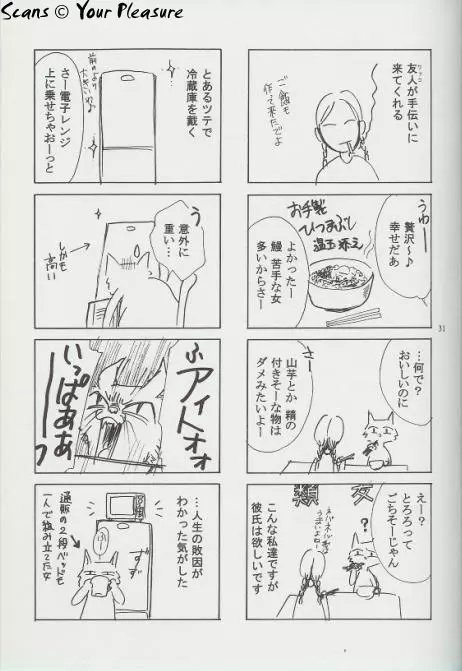 Scans © Your Pleasure
友人が手伝いに
来てくれる
ご飯も
作って来たでよ
うわー
贅沢〜♪
幸せだあ
お手製
ひつまぶし
温玉添え
よかったー
鰻 苦手な女
多いからさー
…何で?
おいしいのに
さー
山芋とか 精の
付きそーな物は
ダメみたいよー
えー?
とろろって
ごちそーじゃん
?
ネバネバ
うまいよねー
こんな私達ですが
彼氏は欲しいです
31
とあるツテで
冷蔵庫を戴く
前のより
大きいわぁ
さー電子レンジ
上に乗せちゃおーっと
うっ
意外に
重い…
しかも
高い
ふァイトォォ
いっぱああーつ
…人生の敗因が
わかった気がした
ずず
通販の2段ベッドも
一人で組み立てた女